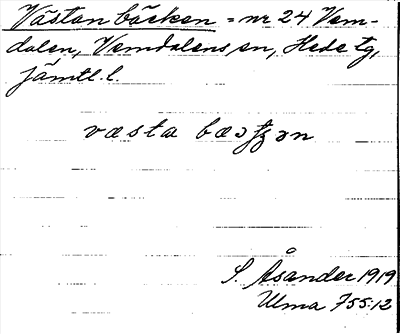 Västanbäcken = nr 24 Vem-
dalen, Vemdalens sn, Hede tg,
Jämtl. l.
væsta
S. Åsander 1919
Ulma 755:12